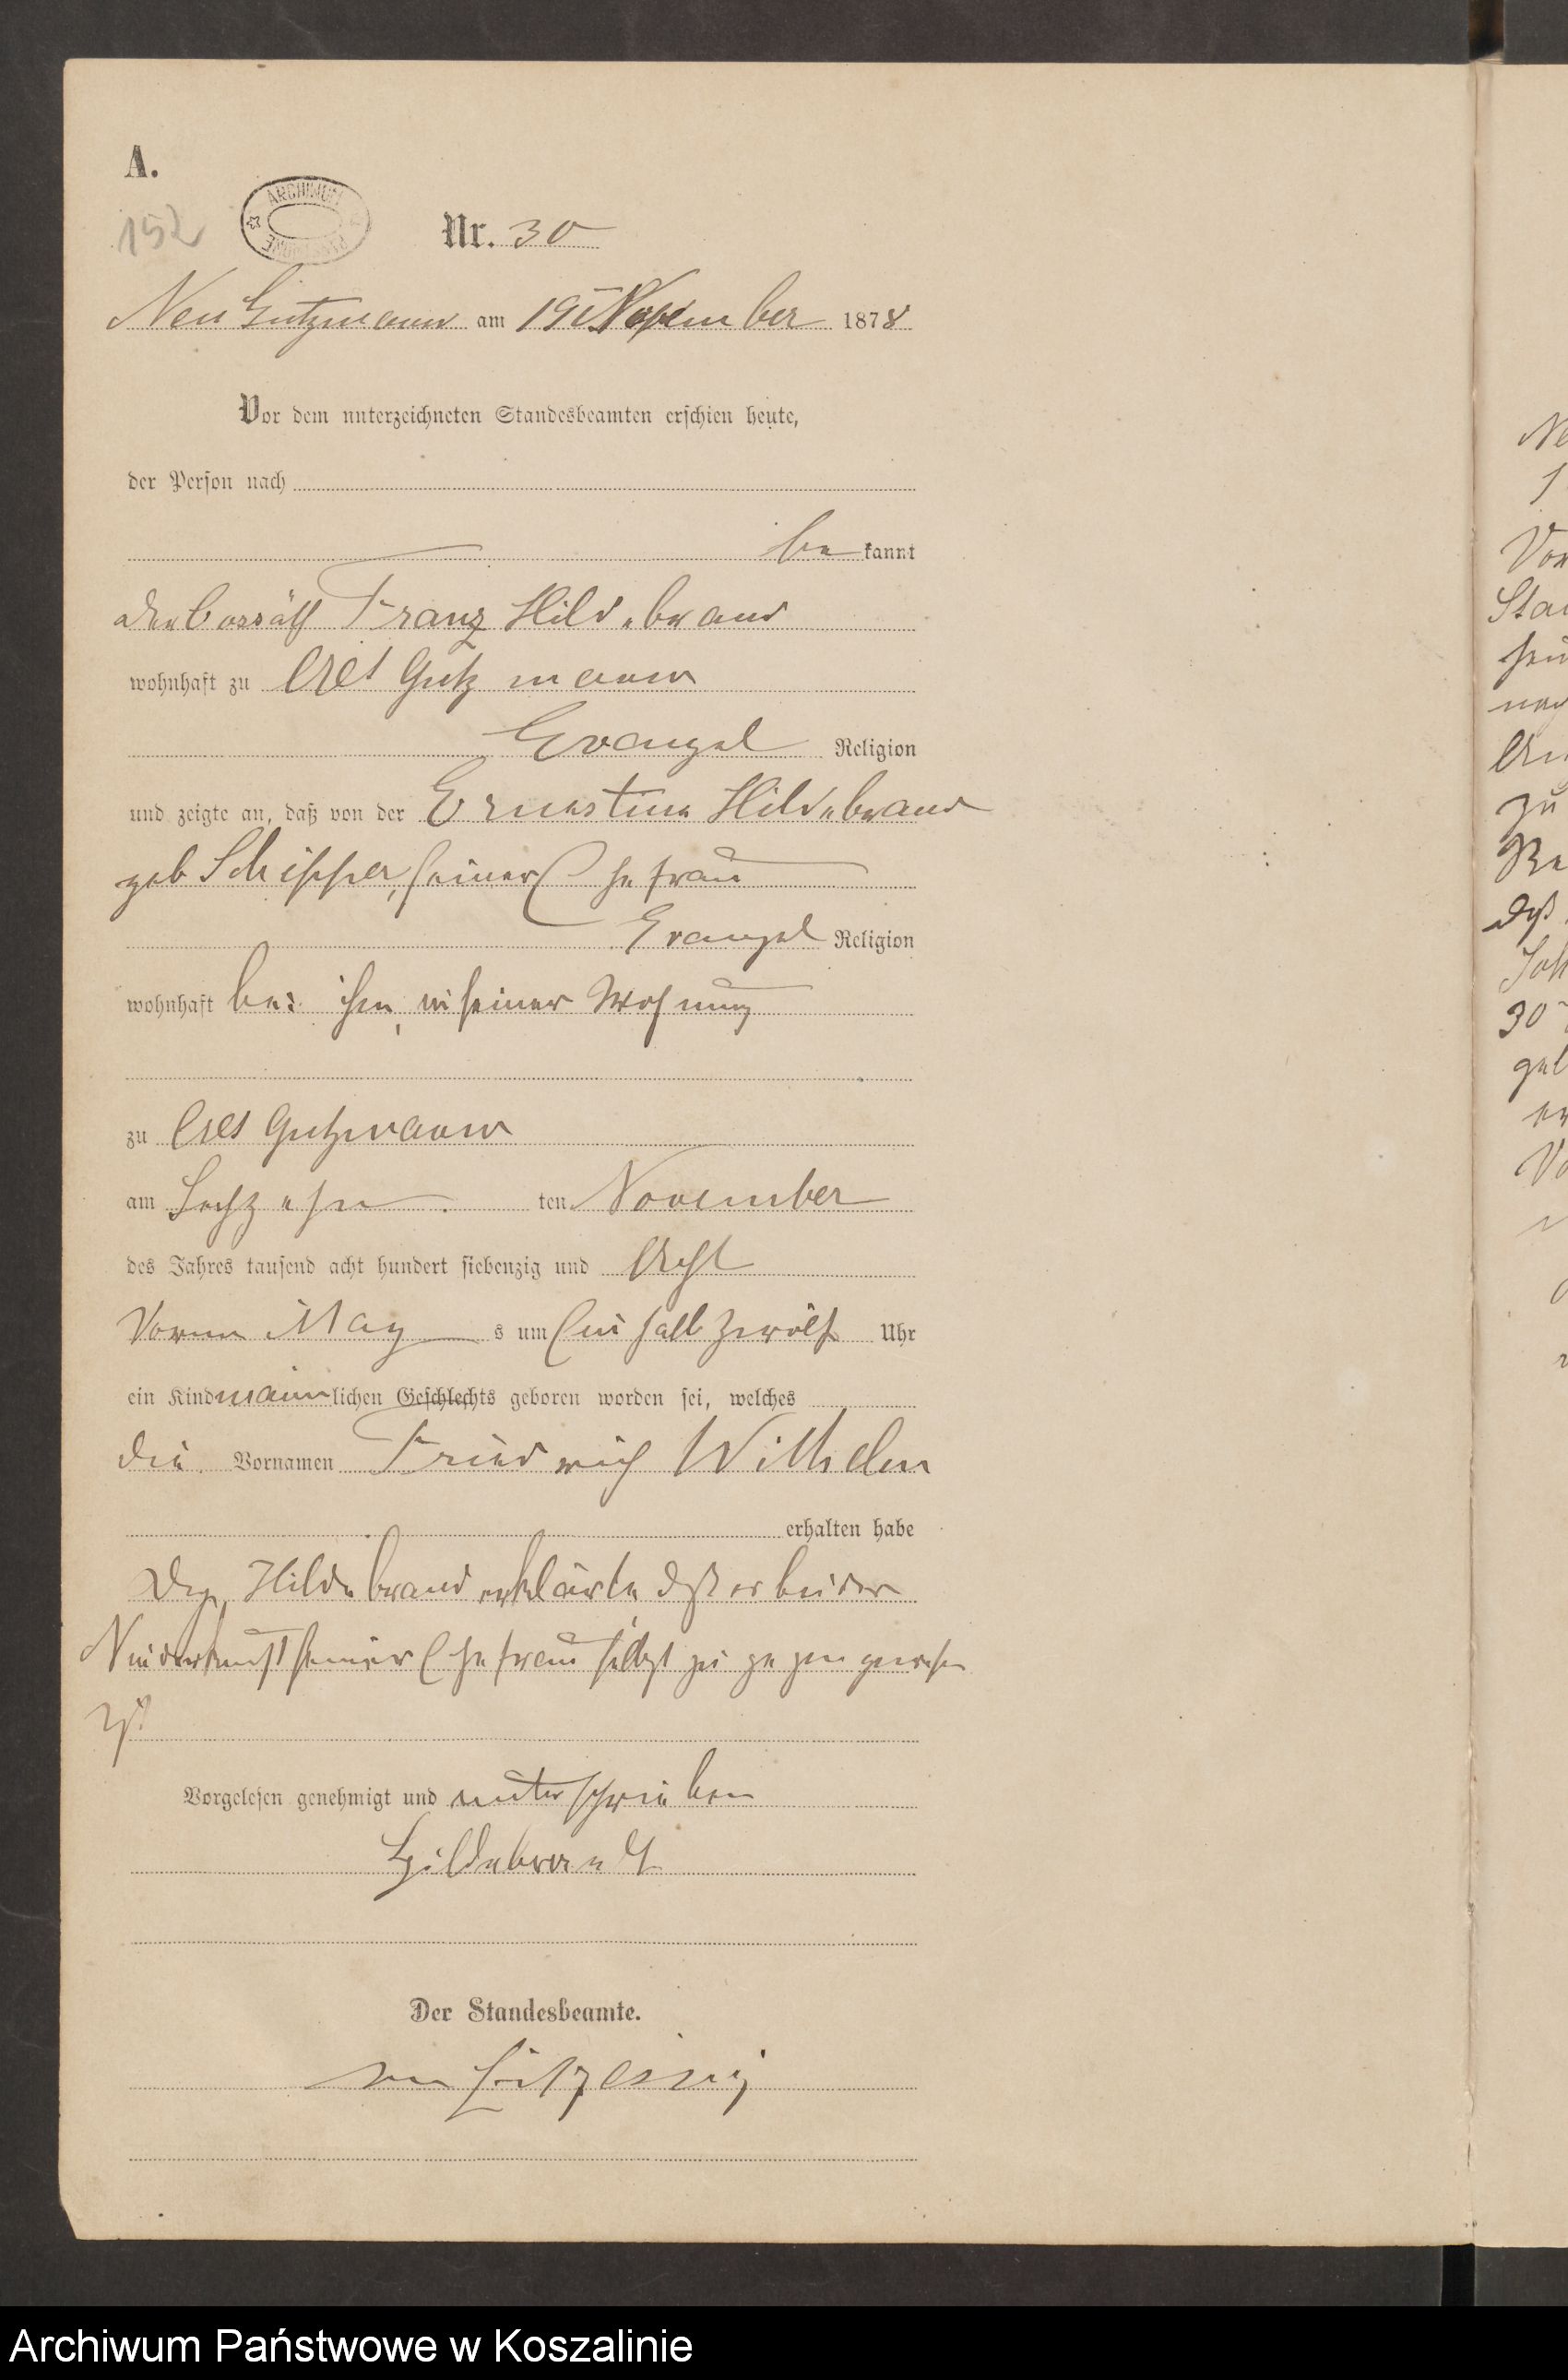 A.
152
ARCHIWUM
Nr. 30
Neu Gutzmerow am 19t November 1878
Vor dem unterzeichneten Standesbeamten erschien heute,
der Person nach
be kannt
der Franz Hildebrand
wohnhaft zu Alt Gutzmerow
Evangel Religion
und zeigte an, daß von der Ernestine Hildebrand
geb seiner Ehefrau
Evangel Religion
wohnhaft bei ihm, in seiner Wohnung
zu Alt Gutzmerow
am Sechzehn ten November
des Jahres tausend acht hundert siebenzig und Acht
Vormittag s um halb zwölf Uhr
ein Kind männlichen Geschlechts geboren worden sei, welches
die Vornamen Friedrich Wilhelm
erhalten habe
Hildebrand erklärte daß er bei der
Niederkunft seiner Ehefrau selbst zugegen gewesen
ist
Vorgelesen genehmigt und unterschrieben
Hildebrandt
Der Standesbeamte.
Ne
Vor
Sta
zu
daß
30
Archiwum Państwowe w Koszalinie